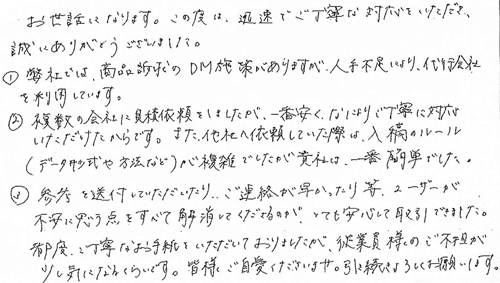 お世話になります。この度は、迅速でご丁寧な対応をいただき、
誠にありがとうございました。
① 弊社では、商品訴求のDM施策がありますが、人手不足により、代行会社
を利用しています。
② 複数の会社に見積依頼をしましたが、一番安く、なによりご丁寧に対応
いただけたからです。また、他社へ依頼していた際は、入稿のルール
(データ形式や方法など)が複雑でしたが貴社は、一番簡単でした。
③ 参考を送付していただいたり、ご連絡が早かったり等、ユーザーが
不安に思う点をすべて解消してくださるのが、とても安心して取引できました。
都度、ご丁寧なお手紙をいただいておりましたが、従業員様のご負担が
少し気になるくらいです。皆様ご自愛くださいませ。引き続きよろしくお願いします。